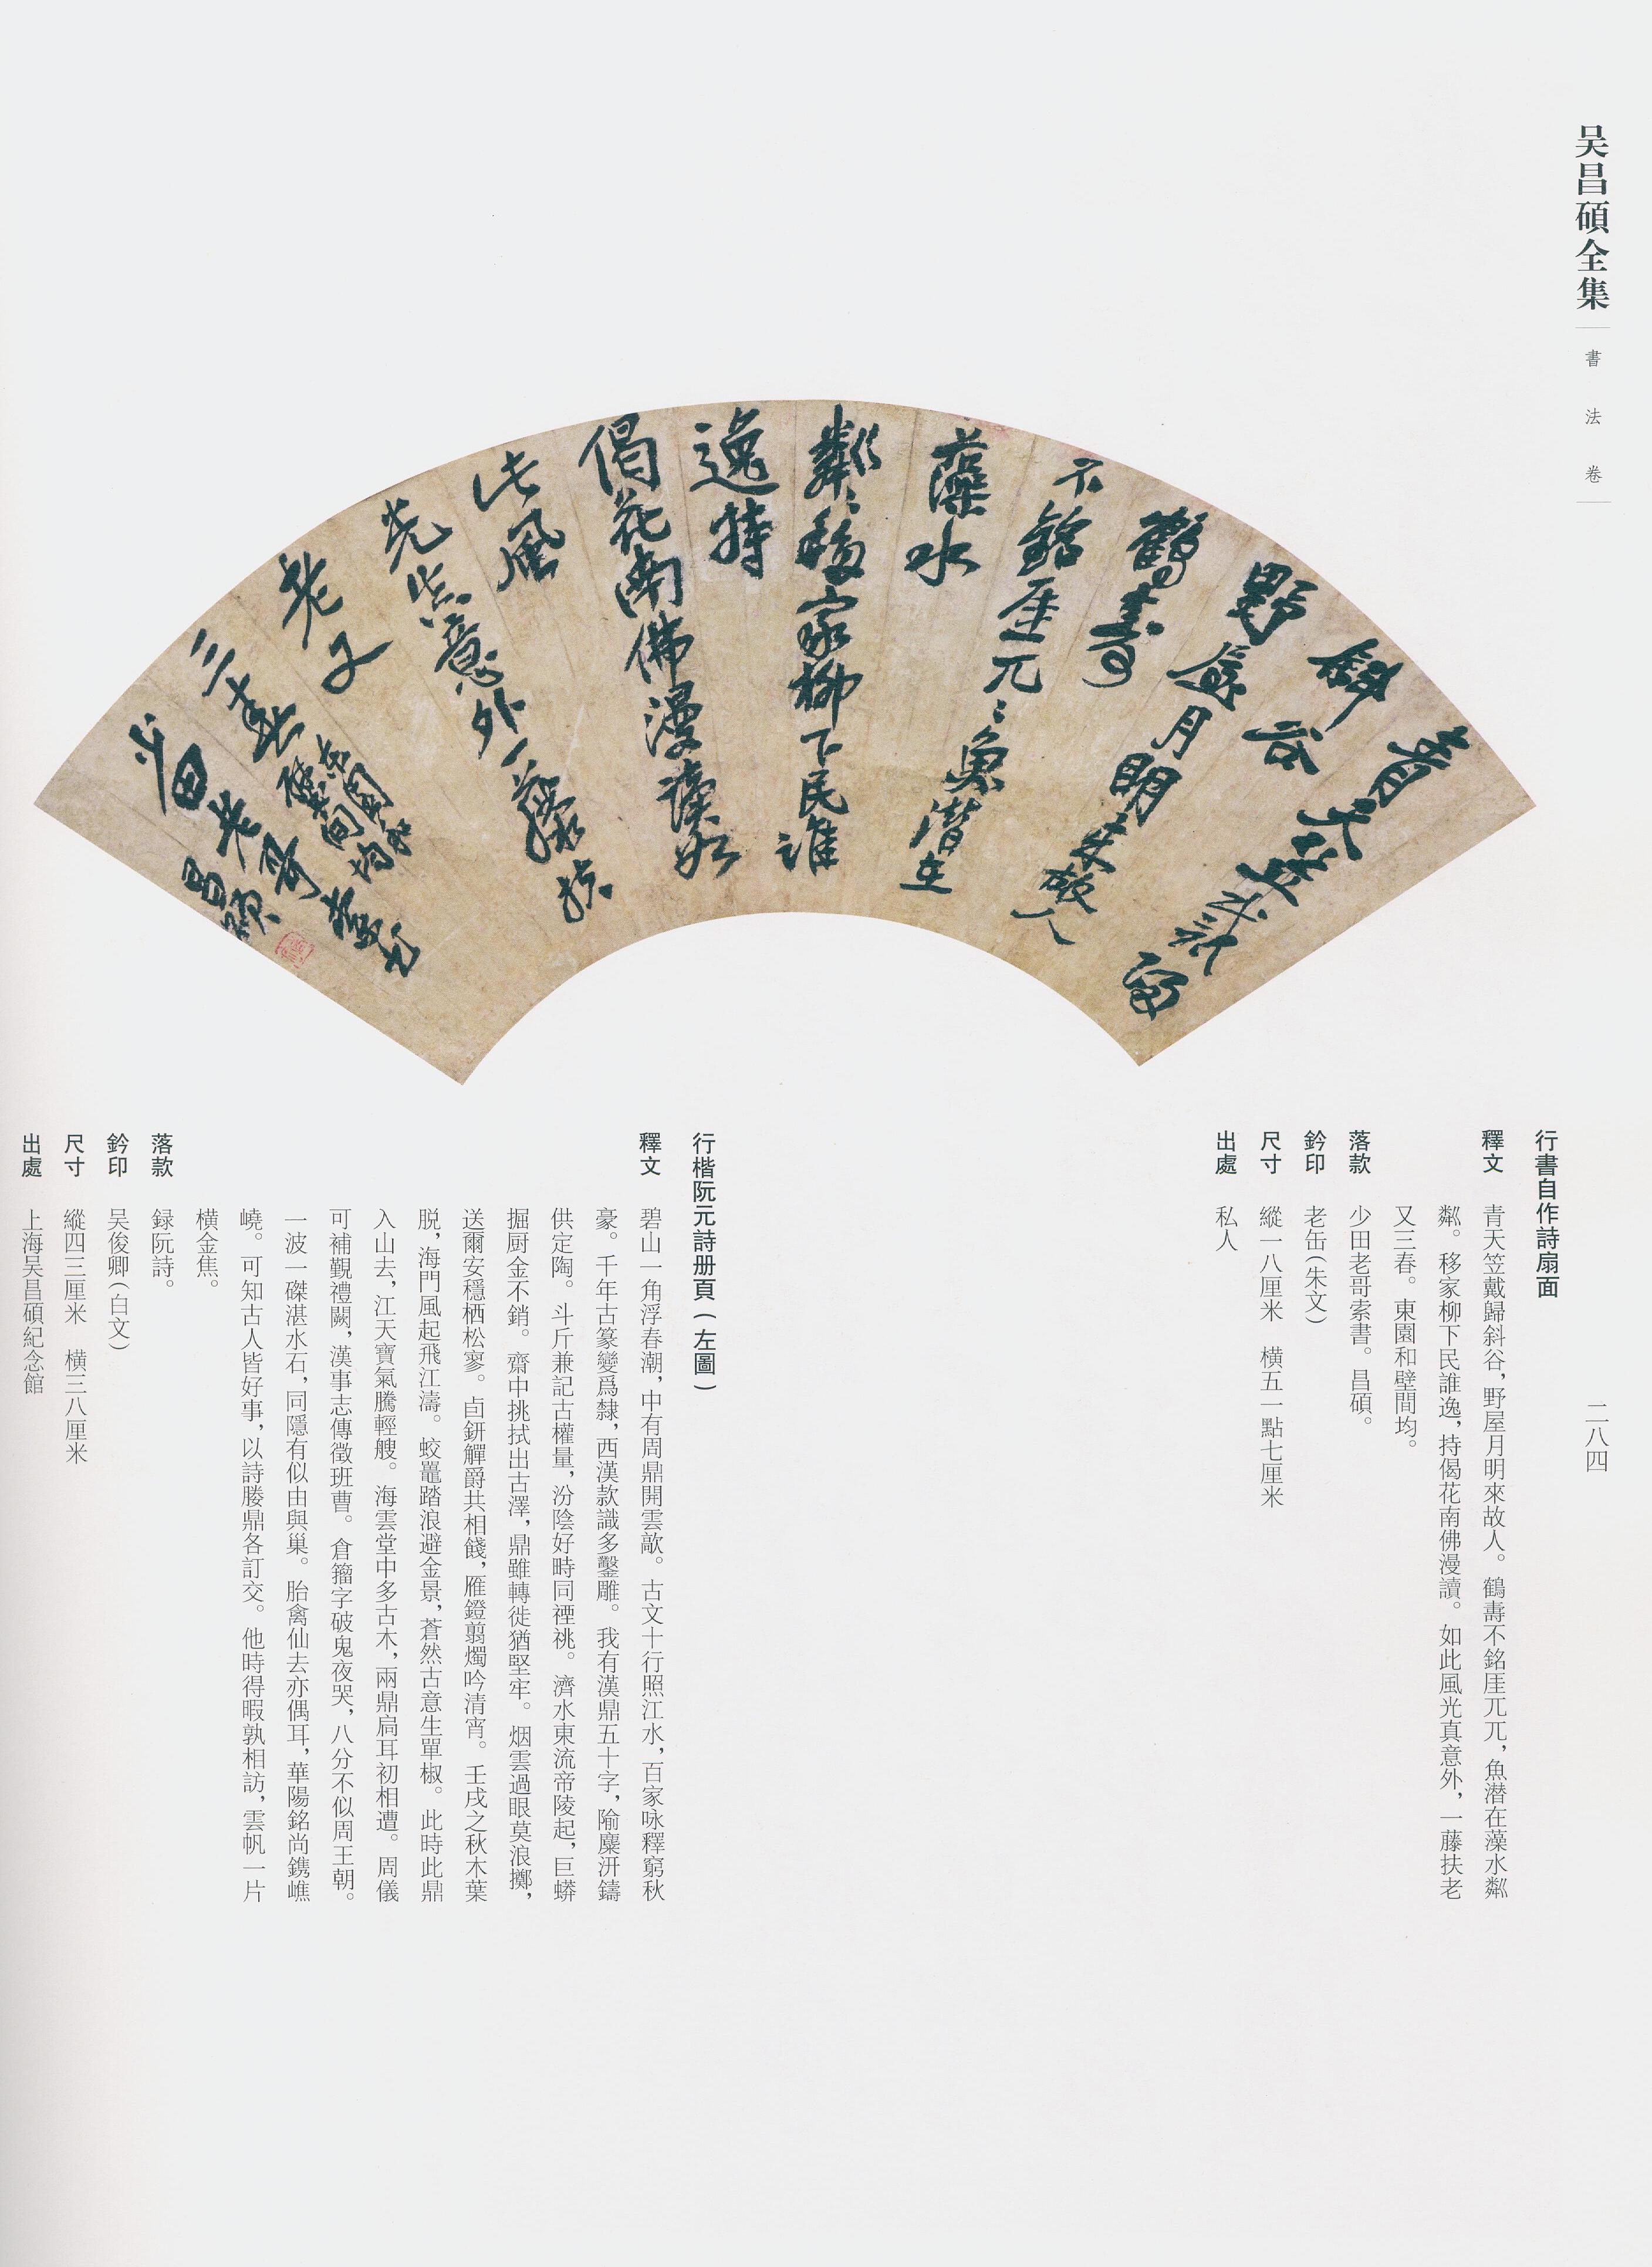 吴昌碩全集
書法卷
青天笠戴歸
斜谷
野屋月明來故人
鶴壽
不銘厓兀〻魚潛在
藻水
粼〻移家柳下民誰
逸持
偈花南佛漫讀如
此風
光真意外一藤扶
老又
三春東園和
壁間均
少田老哥索書
昌碩
二八四
行書自作詩扇面
釋文 青天笠戴歸斜谷，野屋月明來故人。鶴壽不銘厓兀兀，魚潛在藻水粼
粼。移家柳下民誰逸，持偈花南佛漫讀。如此風光真意外，一藤扶老
又三春。東園和壁間均。
落款 少田老哥索書。昌碩。
鈐印 老缶（朱文）
尺寸 縱一八厘米 橫五一點七厘米
出處 私人
行楷阮元詩册頁（左圖）
釋文 碧山一角浮春潮，中有周鼎開雲歊。古文十行照江水，百家咏釋窮秋
豪。千年古篆變爲隸，西漢款識多鑿雕。我有漢鼎五十字，隃麋汧鑄
供定陶。斗斤兼記古權量，汾陰好時同禋祧。濟水東流帝陵起，巨蟒
掘厨金不銷。齋中挑拭出古澤，鼎雖轉徙猶堅牢。烟雲過眼莫浪擲，
送爾安穩栖松寥。卣鈃觶爵共相餞，雁鐙翦燭吟清宵。壬戌之秋木葉
脱，海門風起飛江濤。蛟鼉踏浪避金景，蒼然古意生單椒。此時此鼎
入山去，江天寶氣騰輕艘。海雲堂中多古木，兩鼎扃耳初相遭。周儀
可補覲禮闕，漢事志傳徵班曹。倉籀字破鬼夜哭，八分不似周王朝。
一波一磔湛水石，同隱有似由與巢。胎禽仙去亦偶耳，華陽銘尚鐫嶕
嶢。可知古人皆好事，以詩媵鼎各訂交。他時得暇孰相訪，雲帆一片
横金焦。
落款 録阮詩。
鈐印 吴俊卿（白文）
尺寸 縱四三厘米 橫三八厘米
出處 上海吴昌碩紀念館